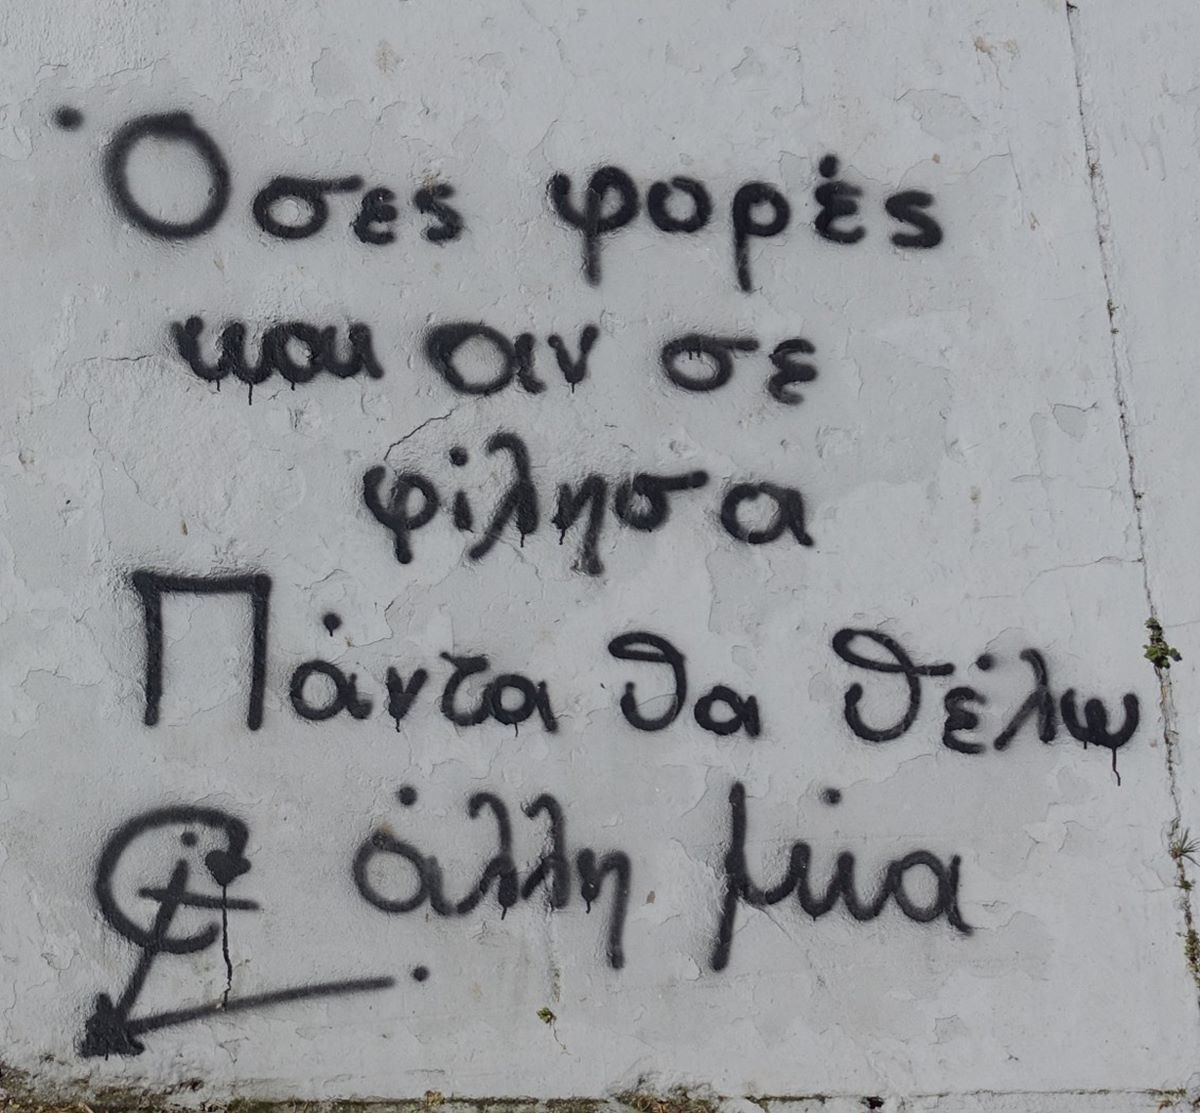 Όσες φορές
και αν σε
φίλησα
Πάντα θα θέλω
άλλη μία